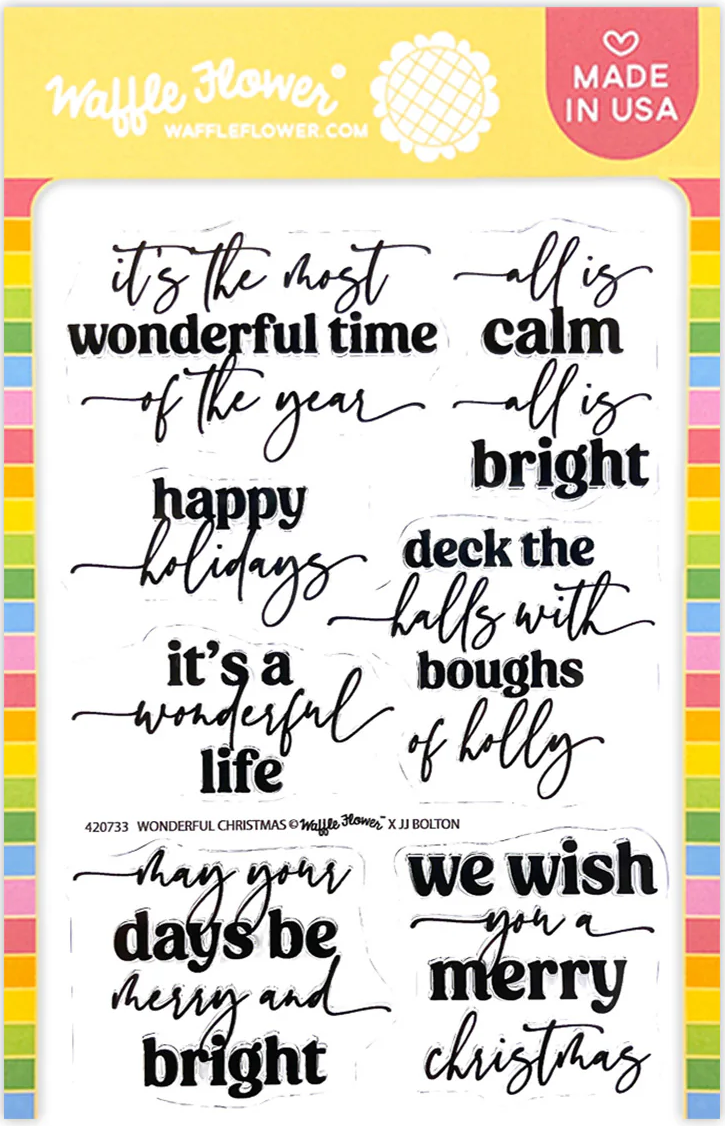 Waffle Flower®
WAFFLEFLOWER.COM
MADE
IN USA
it's the most
wonderful time
of the year
all is
calm
all is
bright
happy
holidays
deck the
halls with
boughs
of holly
it's a
wonderful
life
420733 WONDERFUL CHRISTMAS © Waffle Flower™ X JJ BOLTON
may your
days be
merry and
bright
we wish
you a
merry
christmas